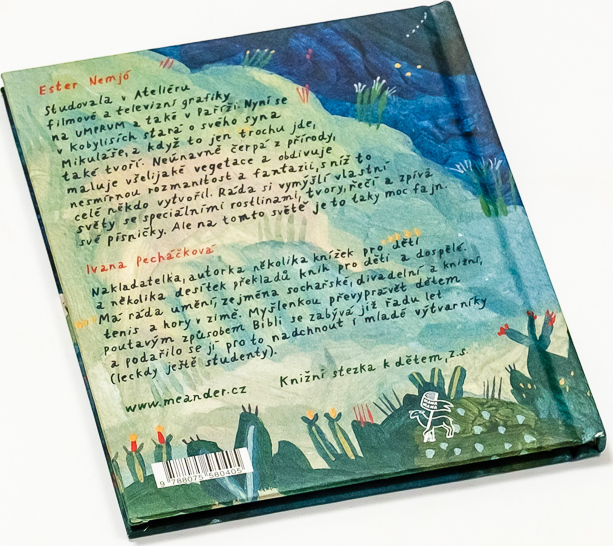 Ester Nemjó
Studovala v Ateliéru
filmové a televizní grafiky
na UMPRUM a také v Paříži. Nyní se
v Kobylisích stará o svého syna
Mikuláše, a když to jen trochu jde,
také tvoří. Neúnavně čerpá z přírody,
maluje všelijaké vegetace a obdivuje
nesmírnou rozmanitost a fantazii, s níž to
celé někdo vytvořil. Ráda si vymýšlí vlastní
světy se speciálními rostlinami, tvory, řečí a zpívá
své písničky. Ale na tomto světě je to taky moc fajn.
Ivana Pecháčková
Nakladatelka, autorka několika knížek pro děti
a několika desítek překladů knih pro děti a dospělé.
Má ráda umění, zejména sochařské, divadelní a knižní,
tenis a hory v zimě. Myšlenkou převyprávět dětem
poutavým způsobem Bibli se zabývá již řadu let
a podařilo se jí pro to nadchnout i mladé výtvarníky
(leckdy ještě studenty).
www.meander.cz
Knižní stezka k dětem, z.s.
9 788075 580405